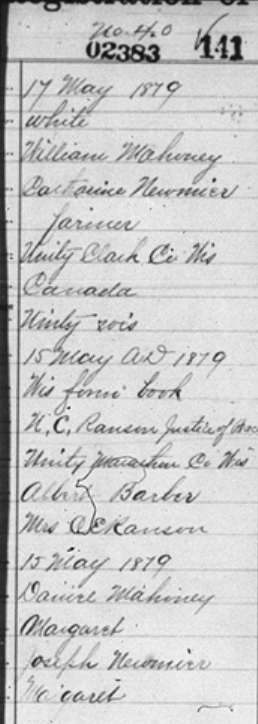 Registration of
No. 40
02383 141
17 May 1879
white
William Mahoney
Catharine Newmier
farmer
Unity Clark Co Wis
Canada
Unity wis
15 May AD 1879
Wis form book
H. C. Ranson Justice of Peace
Unity Marathon Co Wis
Albert Barber
Mrs C Ranson
15 May 1879
Daniel Mahoney
Margaret
Joseph Newmier
Margaret